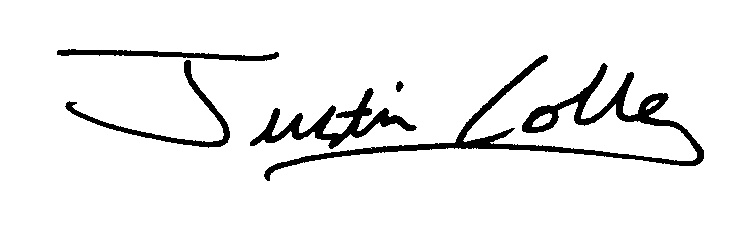 Justin Colley